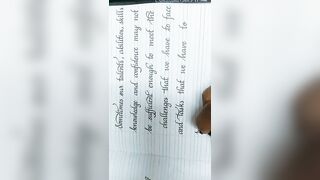 Sometimes our talents, abilities, skills,
knowledge and confidence may not
be sufficient enough to meet the
challenges that we have to face
and tasks that we have to